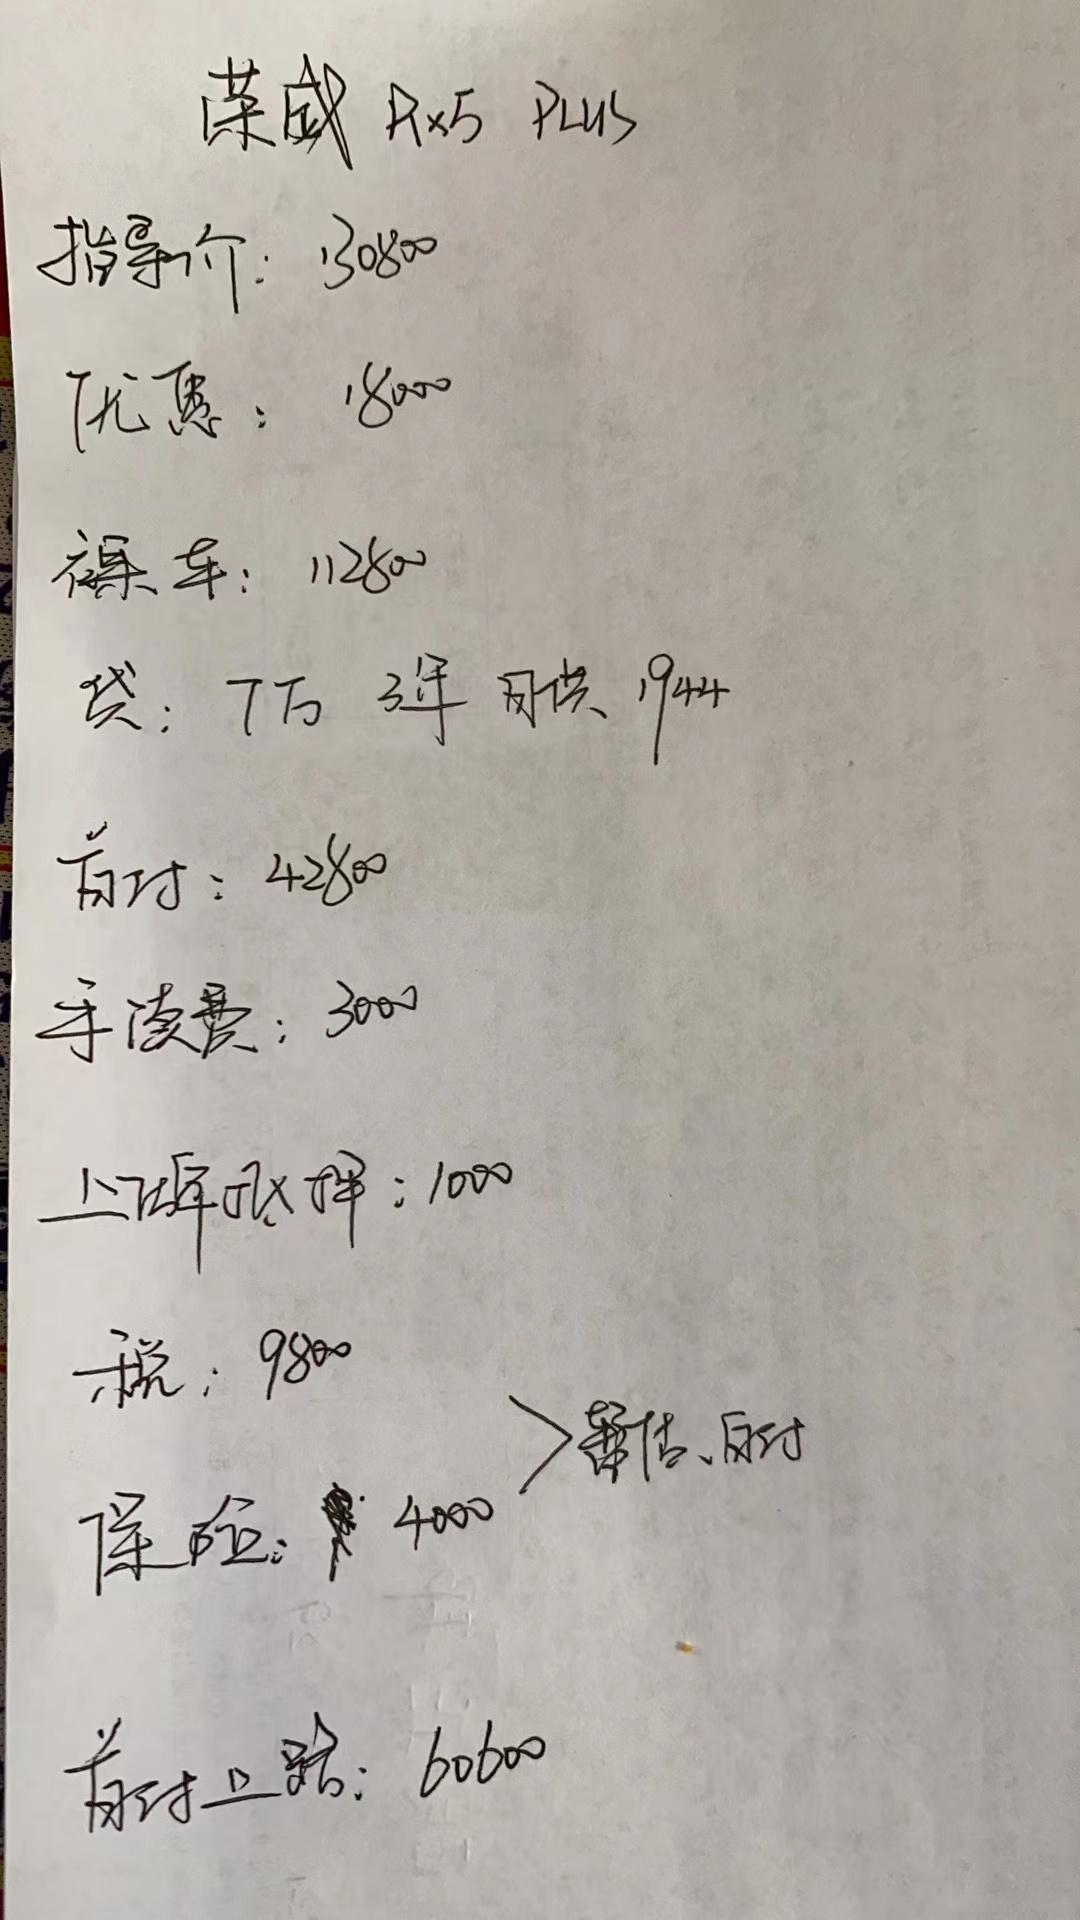 荣威 Rx5 PLUS
指导价: 130800
优惠: 18000
裸车: 112800
贷: 7万 3年 月供 1944
首付: 42800
手续费: 3000
上牌抵押: 1000
税: 9800
保险: 4000
暂估、自付
首付上路: 60600